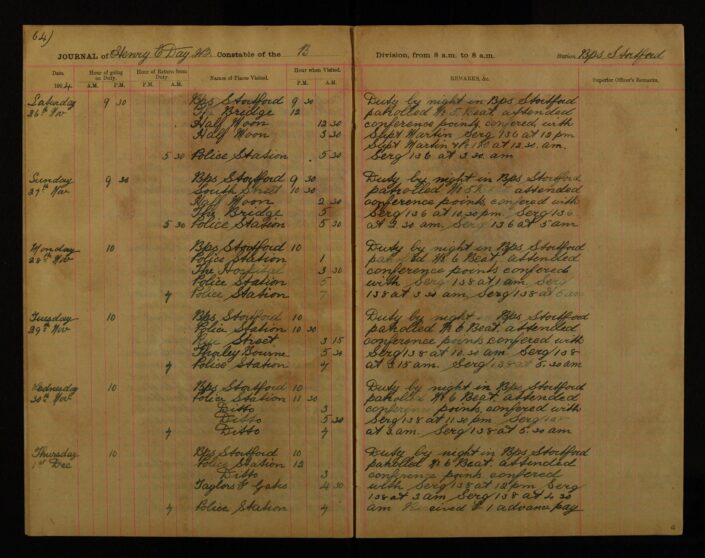 64)
JOURNAL of Henry C Day Constable of the B Division, from 8 a.m. to 8 a.m. Station, Bps Stortford
Date. Hour of going on Duty. Hour of Return from Duty Names of Places Visited. Hour when Visited. REMARKS, &c. Superior Officer's Remarks.
A.M. P.M. A.M. P.M. P.M. A.M.
Saturday 9 30 Bps Stortford 9 30 Duty by night in Bps Stortford
26th Nov The Bridge 12 patrolled No 5 Beat. attended
Half Moon 12 30 conference points, confered, with
Half Moon 3 30 Supt Martin, Serg 136 at 12 pm
Supt Martin at 12.30 am.
5 30 Police Station 5 30 Serg 136 at 3.30 am
Sunday 9 30 Bps Stortford 9 30 Duty by night in Bps Stortford
27th Nov South Street 10 30 patrolled No 5 attended
Half Moon 2 30 conference points, confered with
The Bridge 5 Serg 136 at 10.30 pm. Serg 136
5 30 Police Station 5 30 at 2.30 am, Serg 136 at 5 am
Monday 10 Bps Stortford 10 Duty by night in Bps Stortford
28th Nov Police Station 1 No 6 Beat, attended
The Hospital 3 30 conference points confered
Police Station 5 with Serg 138 at 1 am. Serg
7 Police Station 7 138 at 3.30 am, Serg 138 at
Tuesday 10 Bps Stortford 10 Duty by night in Bps Stortford
29th Nov Police Station 10 30 patrolled No 6 Beat. attended
Street 3 15 conference points confered with
Thorley Bourne 5 30 Serg 138 at 10.30 am. Serg 138
7 Police Station 7 at 3.15 am. Serg 138 at 5.30 am
Wednesday 10 Bps Stortford 10 Duty by night in Bps Stortford
30th Nov Police Station 11 30 patrolled No 6 Beat. attended
Ditto 3 conference points, confered with
Ditto 5 30 Serg 138 at 11.30 pm Serg 138
7 Ditto 7 at 3 am. Serg 138 at 5.30 am
Thursday 10 Bps Stortford 10 Duty by night in Bps Stortford
1st Dec Police Station 12 patrolled No 6 Beat. attended
Ditto 3 conference points confered
Taylors Gates 4 30 with Serg 138 at 12 pm Serg
138 at 3 am Serg 138 at 4.30
7 Police Station 7 am Received £1 advance pay